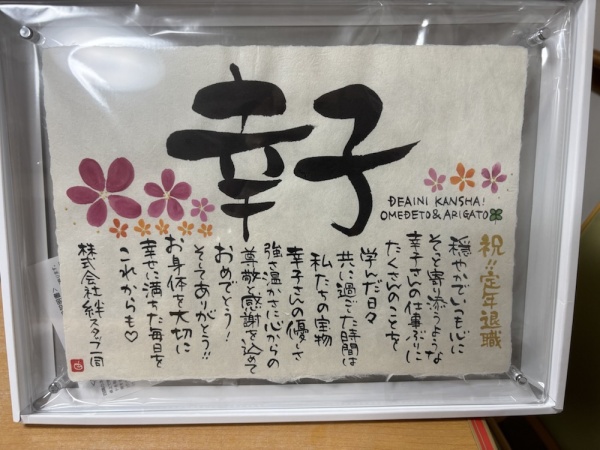 幸子
DEAINI KANSHA!
OMEDETO&ARIGATO
祝!!定年退職
穏やかでいつも心に
そっと寄り添うような
幸子さんの仕事ぶりに
たくさんのことを
学んだ日々
共に過ごした時間は
私たちの宝物
幸子さんの優しさ
強さ温かさに心からの
尊敬と感謝を込めて
おめでとう!
そしてありがとう!!
お身体を大切に
幸せに満ちた毎日を
これからも♡
株式会社絆スタッフ一同